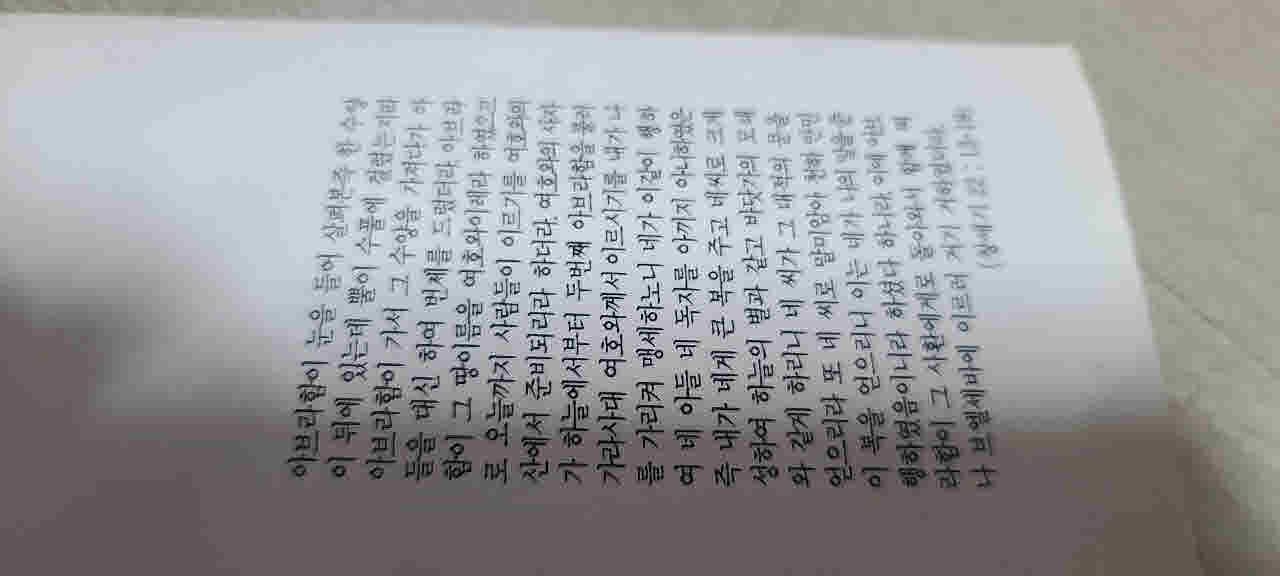 아브라함이 눈을 들어 살펴본즉 한 수양
이 뒤에 있는데 뿔이 수풀에 걸렸는지라
아브라함이 가서 그 수양을 가져다가 아
들을 대신 하여 번제를 드렸더라 아브라
함이 그 땅이름을 여호와이레라 하였으므
로 오늘까지 사람들이 이르기를 여호와의
산에서 준비되리라 하더라. 여호와의 사자
가 하늘에서부터 두번째 아브라함을 불러
가라사대 여호와께서 이르시기를 내가 나
를 가리켜 맹세하노니 네가 이같이 행하
여 네 아들 네 독자를 아끼지 아니하였은
즉 내가 네게 큰 복을 주고 네씨로 크게
성하여 하늘의 별과 같고 바닷가의 모래
와 같게 하리니 네 씨가 그 대적의 문을
얻으리라 또 네 씨로 말미암아 천하 만민
이 복을 얻으리니 이는 네가 나의 말을 준
행하였음이니라 하셨다 하니라 이에 아브
라함이 그 사환에게로 돌아와서 함께 떠
나 브엘세바에 이르러 거기 거하였더라.
(창세기 22 : 13-19)